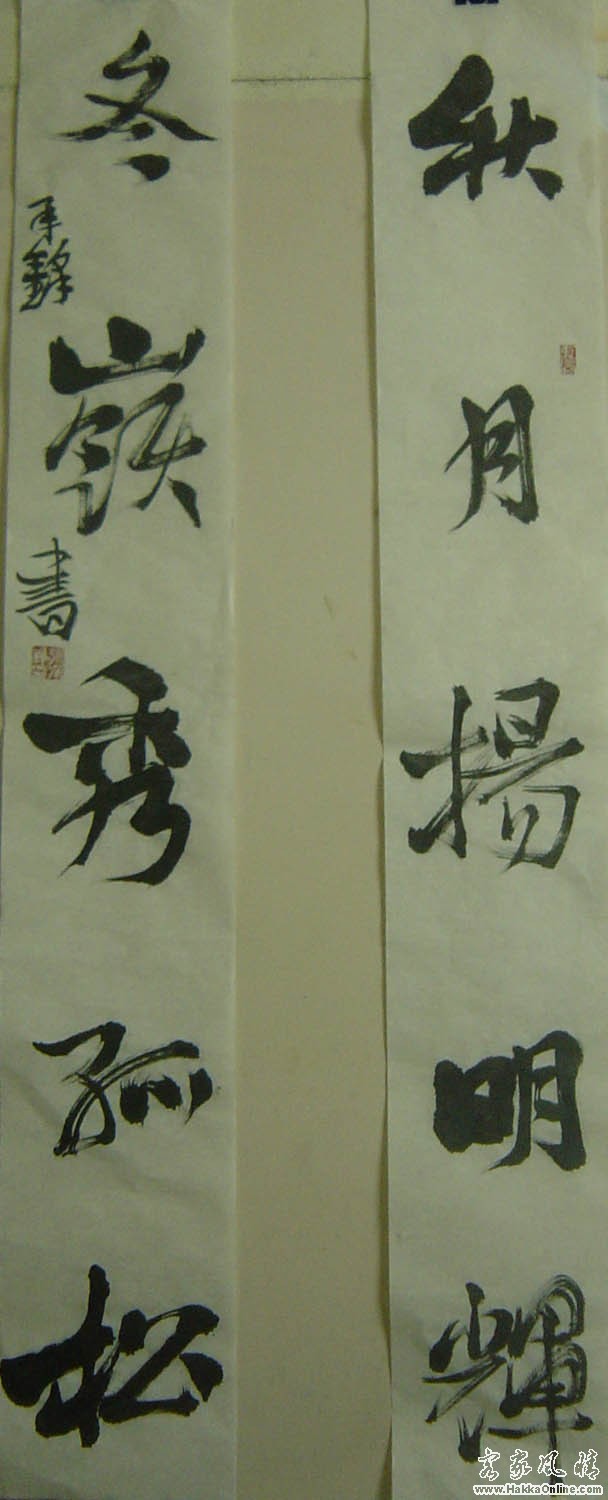 秋月揚明輝
冬嶺秀孤松
書
客家风情
www.HakkaOnline.com